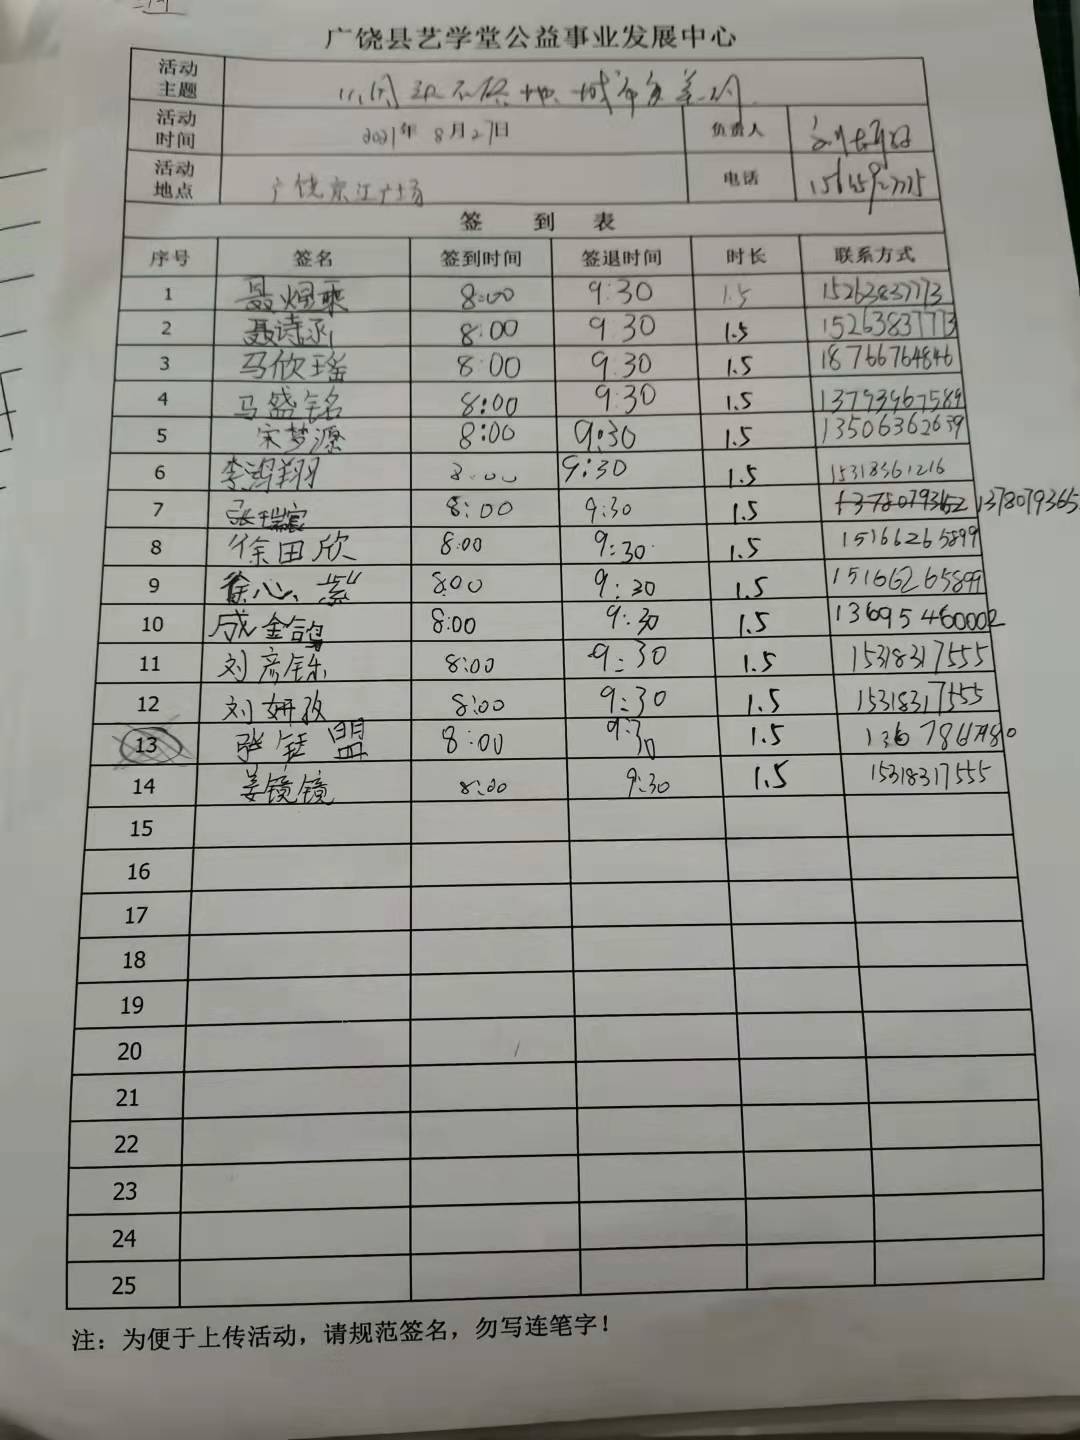 广饶县艺学堂公益事业发展中心
活动主题
活动时间 2021年8月27日 负责人
活动地点 广饶 电话
签到表
序号 签名 签到时间 签退时间 时长 联系方式
1 聂煜乘 8:00 9:30 1.5 15263837773
2 聂诗涵 8:00 9:30 1.5 15263837773
3 马欣瑶 8:00 9:30 1.5 18766764846
4 马盛铭 8:00 9:30 1.5 13793967589
5 宋梦源 8:00 9:30 1.5 13506362639
6 李鸿翔 8:00 9:30 1.5 15318361216
7 张瑞宸 8:00 9:30 1.5 1378079365
8 徐田欣 8:00 9:30 1.5 15166265899
9 徐心紫 8:00 9:30 1.5 15166265899
10 成金鸽 8:00 9:30 1.5 13695460002
11 刘彦铄 8:00 9:30 1.5 15318317555
12 刘妍孜 8:00 9:30 1.5 15318317555
13 张钰盟 8:00 9:30 1.5
14 姜镜镜 8:00 9:30 1.5 15318317555
15
16
17
18
19
20
21
22
23
24
25
注：为便于上传活动，请规范签名，勿写连笔字！